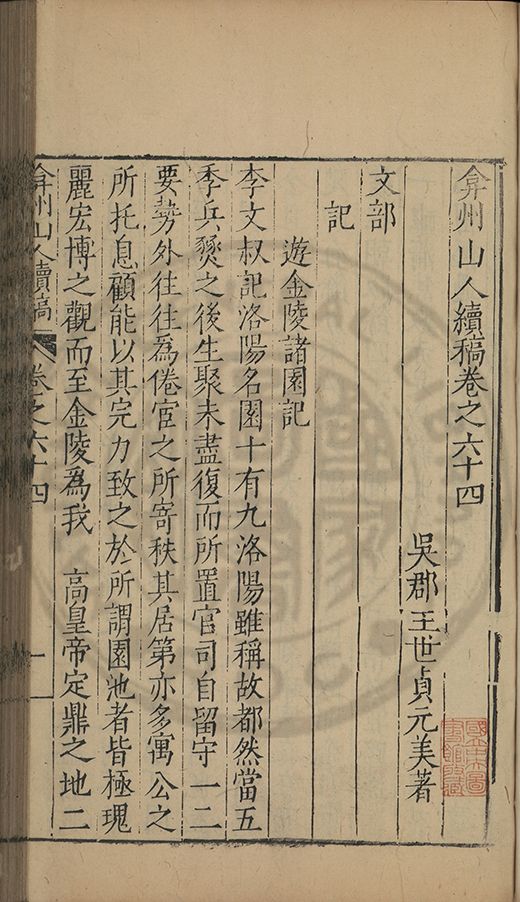 弇州山人續稿卷之六十四
吳郡王世貞元美著
文部
記
遊金陵諸園記
李文叔記洛陽名園十有九洛陽雖稱故都然當五
季兵燹之後生聚未盡復而所置官司自留守一二
要勢外往往爲倦宦之所寄秩其居第亦多寓公之
所托息顧能以其完力致之於所謂園池者皆極瑰
麗宏博之觀而至金陵為我　高皇帝定鼎之地二
弇州山人續稿　卷之六十四　一
國立中央圖
書館收藏